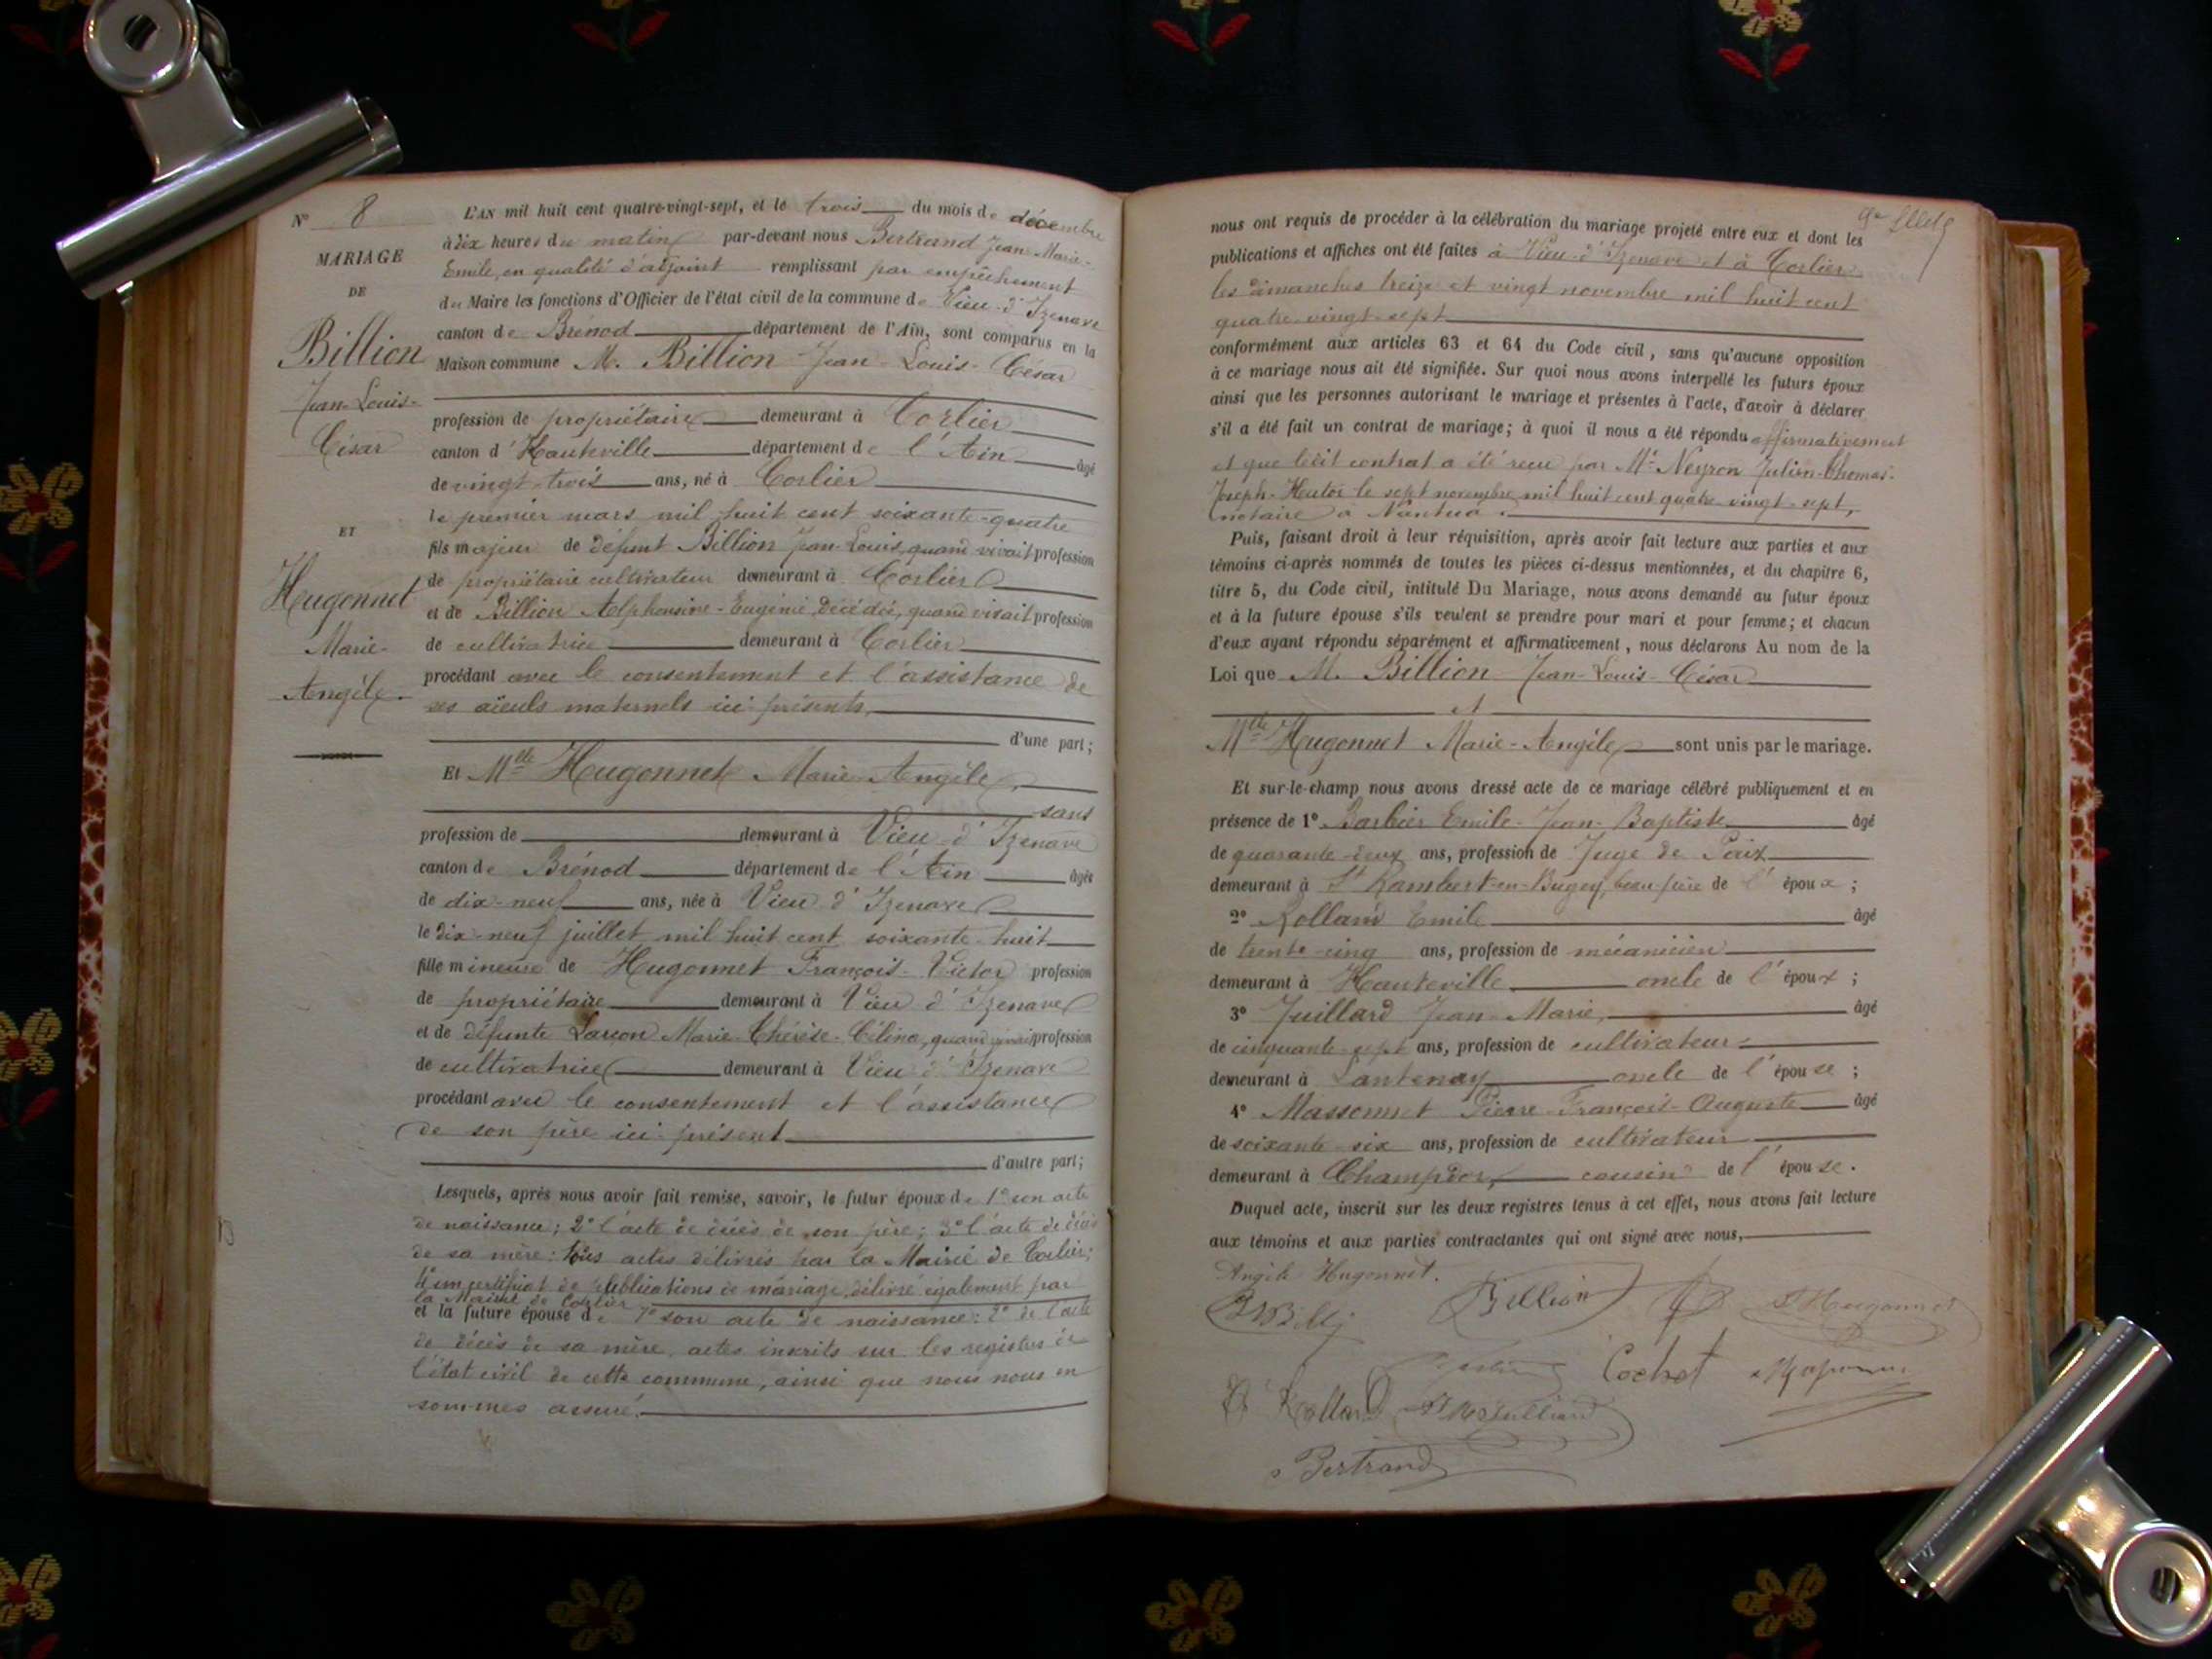 N° 8
MARIAGE
DE
Billion
Jean-Louis-
César
ET
Hugonnet
Marie-
Angèle.
L'AN mil huit cent quatre-vingt-sept, et le trois du mois de décembre
à dix heures du matin par-devant nous Bertrand Jean-Marie-
Emile, en qualité d'adjoint remplissant par empêchement
du Maire les fonctions d'Officier de l'état civil de la commune de Vieu-d'Izenave
canton de Brénod département de l'Ain, sont comparus en la
Maison commune M. Billion Jean-Louis-César
profession de propriétaire demeurant à Corlier
canton d'Hauteville département de l'Ain âgé
de vingt-trois ans, né à Corlier
le premier mars mil huit cent soixante-quatre
fils majeur de défunt Billion Jean-Louis, quand vivait profession
de propriétaire cultivateur demeurant à Corlier
et de Billion Alphonsine-Eugénie, décédée, quand vivait profession
de cultivatrice demeurant à Corlier
procédant avec le consentement et l'assistance de
ses aïeuls maternels ici présents,
d'une part;
Et Mlle Hugonnet Marie-Angèle,
sans
profession de demeurant à Vieu-d'Izenave
canton de Brénod département de l'Ain âgée
de dix-neuf ans, née à Vieu-d'Izenave
le dix-neuf juillet mil huit cent soixante-huit
fille mineure de Hugonnet François-Victor profession
de propriétaire demeurant à Vieu d'Izenave
et de défunte Larçon Marie-Thérèse-Célina, quand vivait profession
de cultivatrice demeurant à Vieu d'Izenave
procédant avec le consentement et l'assistance
de son père ici présent
d'autre part;
Lesquels, après nous avoir fait remise, savoir, le futur époux de 1° son acte
de naissance; 2° l'acte de décès de son père; 3° l'acte de décès
de sa mère: tous actes délivrés par la Mairie de Corlier;
4° un certificat de publications de mariage, délivré également par
la Mairie de Corlier
et la future épouse de 1° son acte de naissance: 2° de l'acte
de décès de sa mère, actes inscrits sur les registres de
l'état civil de cette commune, ainsi que nous nous en
sommes assuré.
nous ont requis de procéder à la célébration du mariage projeté entre eux et dont les
publications et affiches ont été faites à Vieu-d'Izenave et à Corlier
les dimanches treize et vingt novembre mil huit cent
quatre-vingt-sept
conformément aux articles 63 et 64 du Code civil, sans qu'aucune opposition
à ce mariage nous ait été signifiée. Sur quoi nous avons interpellé les futurs époux
ainsi que les personnes autorisant le mariage et présentes à l'acte, d'avoir à déclarer
s'il a été fait un contrat de mariage; à quoi il nous a été répondu affirmativement
et que ledit contrat a été reçu par Me Neyron Julien-Thomas-
Joseph-Hector le sept novembre mil huit cent quatre-vingt-sept,
notaire à Nantua.
Puis, faisant droit à leur réquisition, après avoir fait lecture aux parties et aux
témoins ci-après nommés de toutes les pièces ci-dessus mentionnées, et du chapitre 6,
titre 5, du Code civil, intitulé Du Mariage, nous avons demandé au futur époux
et à la future épouse s'ils veulent se prendre pour mari et pour femme; et chacun
d'eux ayant répondu séparément et affirmativement, nous déclarons Au nom de la
Loi que M. Billion Jean-Louis-César
et
Mlle Hugonnet Marie-Angèle sont unis par le mariage.
Et sur-le-champ nous avons dressé acte de ce mariage célébré publiquement et en
présence de 1° Barbier Emile-Jean-Baptiste âgé
de quarante-deux ans, profession de Juge de Paix
demeurant à St Rambert-en-Bugey, beau-père de l'époux;
2° Rolland Emile âgé
de trente-cinq ans, profession de mécanicien
demeurant à Hauteville oncle de l'époux;
3° Juillard Jean-Marie, âgé
de cinquante-sept ans, profession de cultivateur
demeurant à Lantenay oncle de l'épouse;
4° Massonnet Pierre-François-Auguste âgé
de soixante-six ans, profession de cultivateur
demeurant à Champdor, cousin de l'épouse.
Duquel acte, inscrit sur les deux registres tenus à cet effet, nous avons fait lecture
aux témoins et aux parties contractantes qui ont signé avec nous,
Angèle Hugonnet.
Billion
Hugonnet
Cochet
Rolland
Bertrand